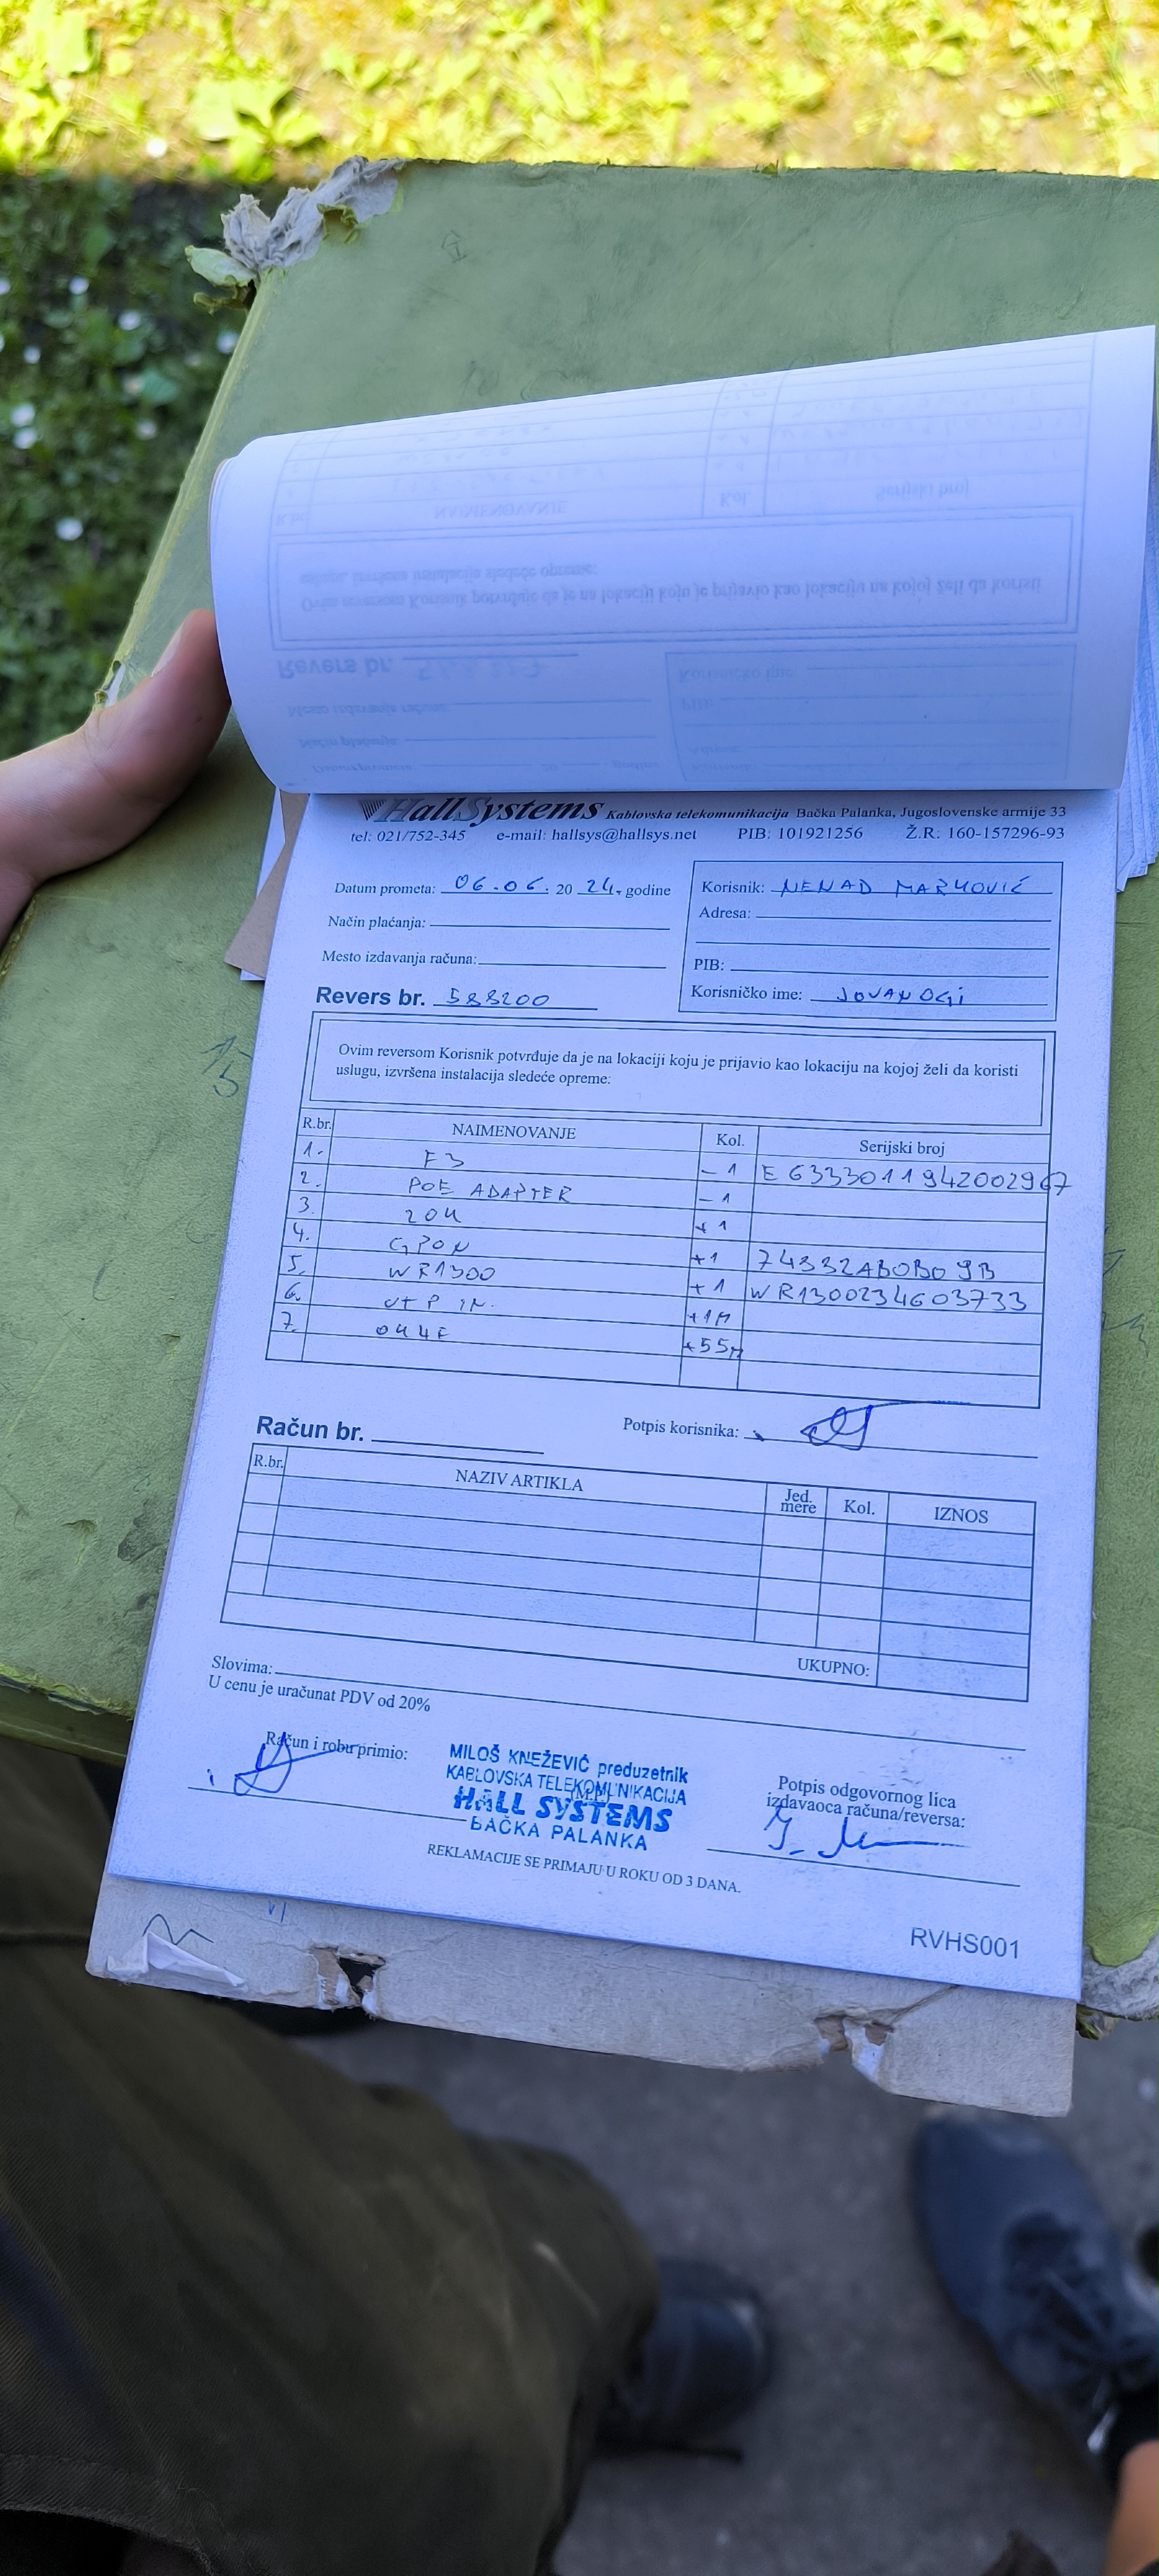 HallSystems Kablovska telekomunikacija Bačka Palanka, Jugoslovenske armije 33
tel: 021/752-345 e-mail: hallsys@hallsys.net PIB: 101921256 Ž.R. 160-157296-93
Datum prometa: 06.06. 20 24. godine
Način plaćanja:
Mesto izdavanja računa:
Korisnik: NENAD MARKOVIĆ
Adresa:
PIB:
Korisničko ime: JOVANOGI
Revers br. 588200
Ovim reversom Korisnik potvrđuje da je na lokaciji koju je prijavio kao lokaciju na kojoj želi da koristi
uslugu, izvršena instalacija sledeće opreme:
R.br. NAIMENOVANJE Kol. Serijski broj
1. F3 -1 E6333011942002967
2. POE ADAPTER -1
3. ZOK +1
4. GPON +1 74332AB0B09B
5. WR1300 +1 WR1300234603733
6. UTP IN. +1M
7. +55M
Potpis korisnika:
Račun br.
R.br. NAZIV ARTIKLA Jed. mere Kol. IZNOS
UKUPNO:
Slovima:
U cenu je uračunat PDV od 20%
Račun i robu primio:
MILOŠ KNEŽEVIĆ preduzetnik
KABLOVSKA TELEKOMUNIKACIJA
(M.P.)
HALL SYSTEMS
BAČKA PALANKA
Potpis odgovornog lica
izdavaoca računa/reversa:
REKLAMACIJE SE PRIMAJU U ROKU OD 3 DANA.
RVHS001